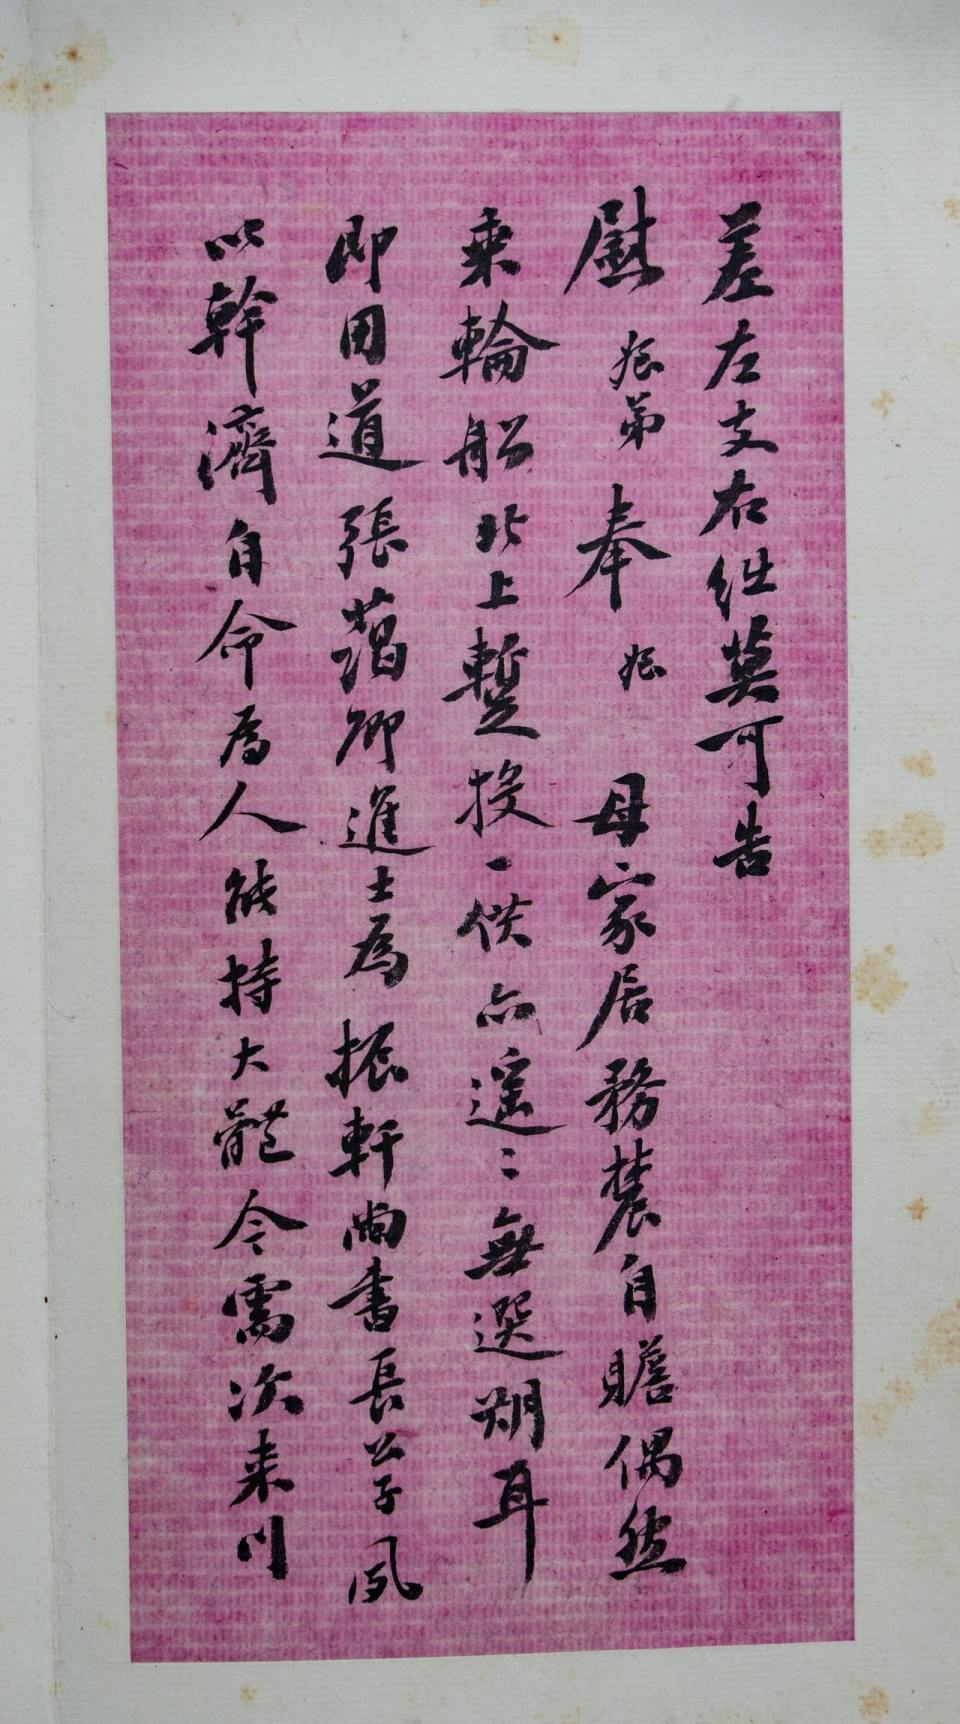 差左支右绌莫可告
慰 弟奉 母家居務農自贍偶然
乘輪船北上暫投一供亦遥〻無選期耳
即用道張藹卿進士為 振軒尚書長公子夙
以幹濟自命為人能持大體令需次来川